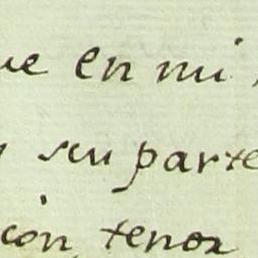 ue en mi
su parte
cion tenor